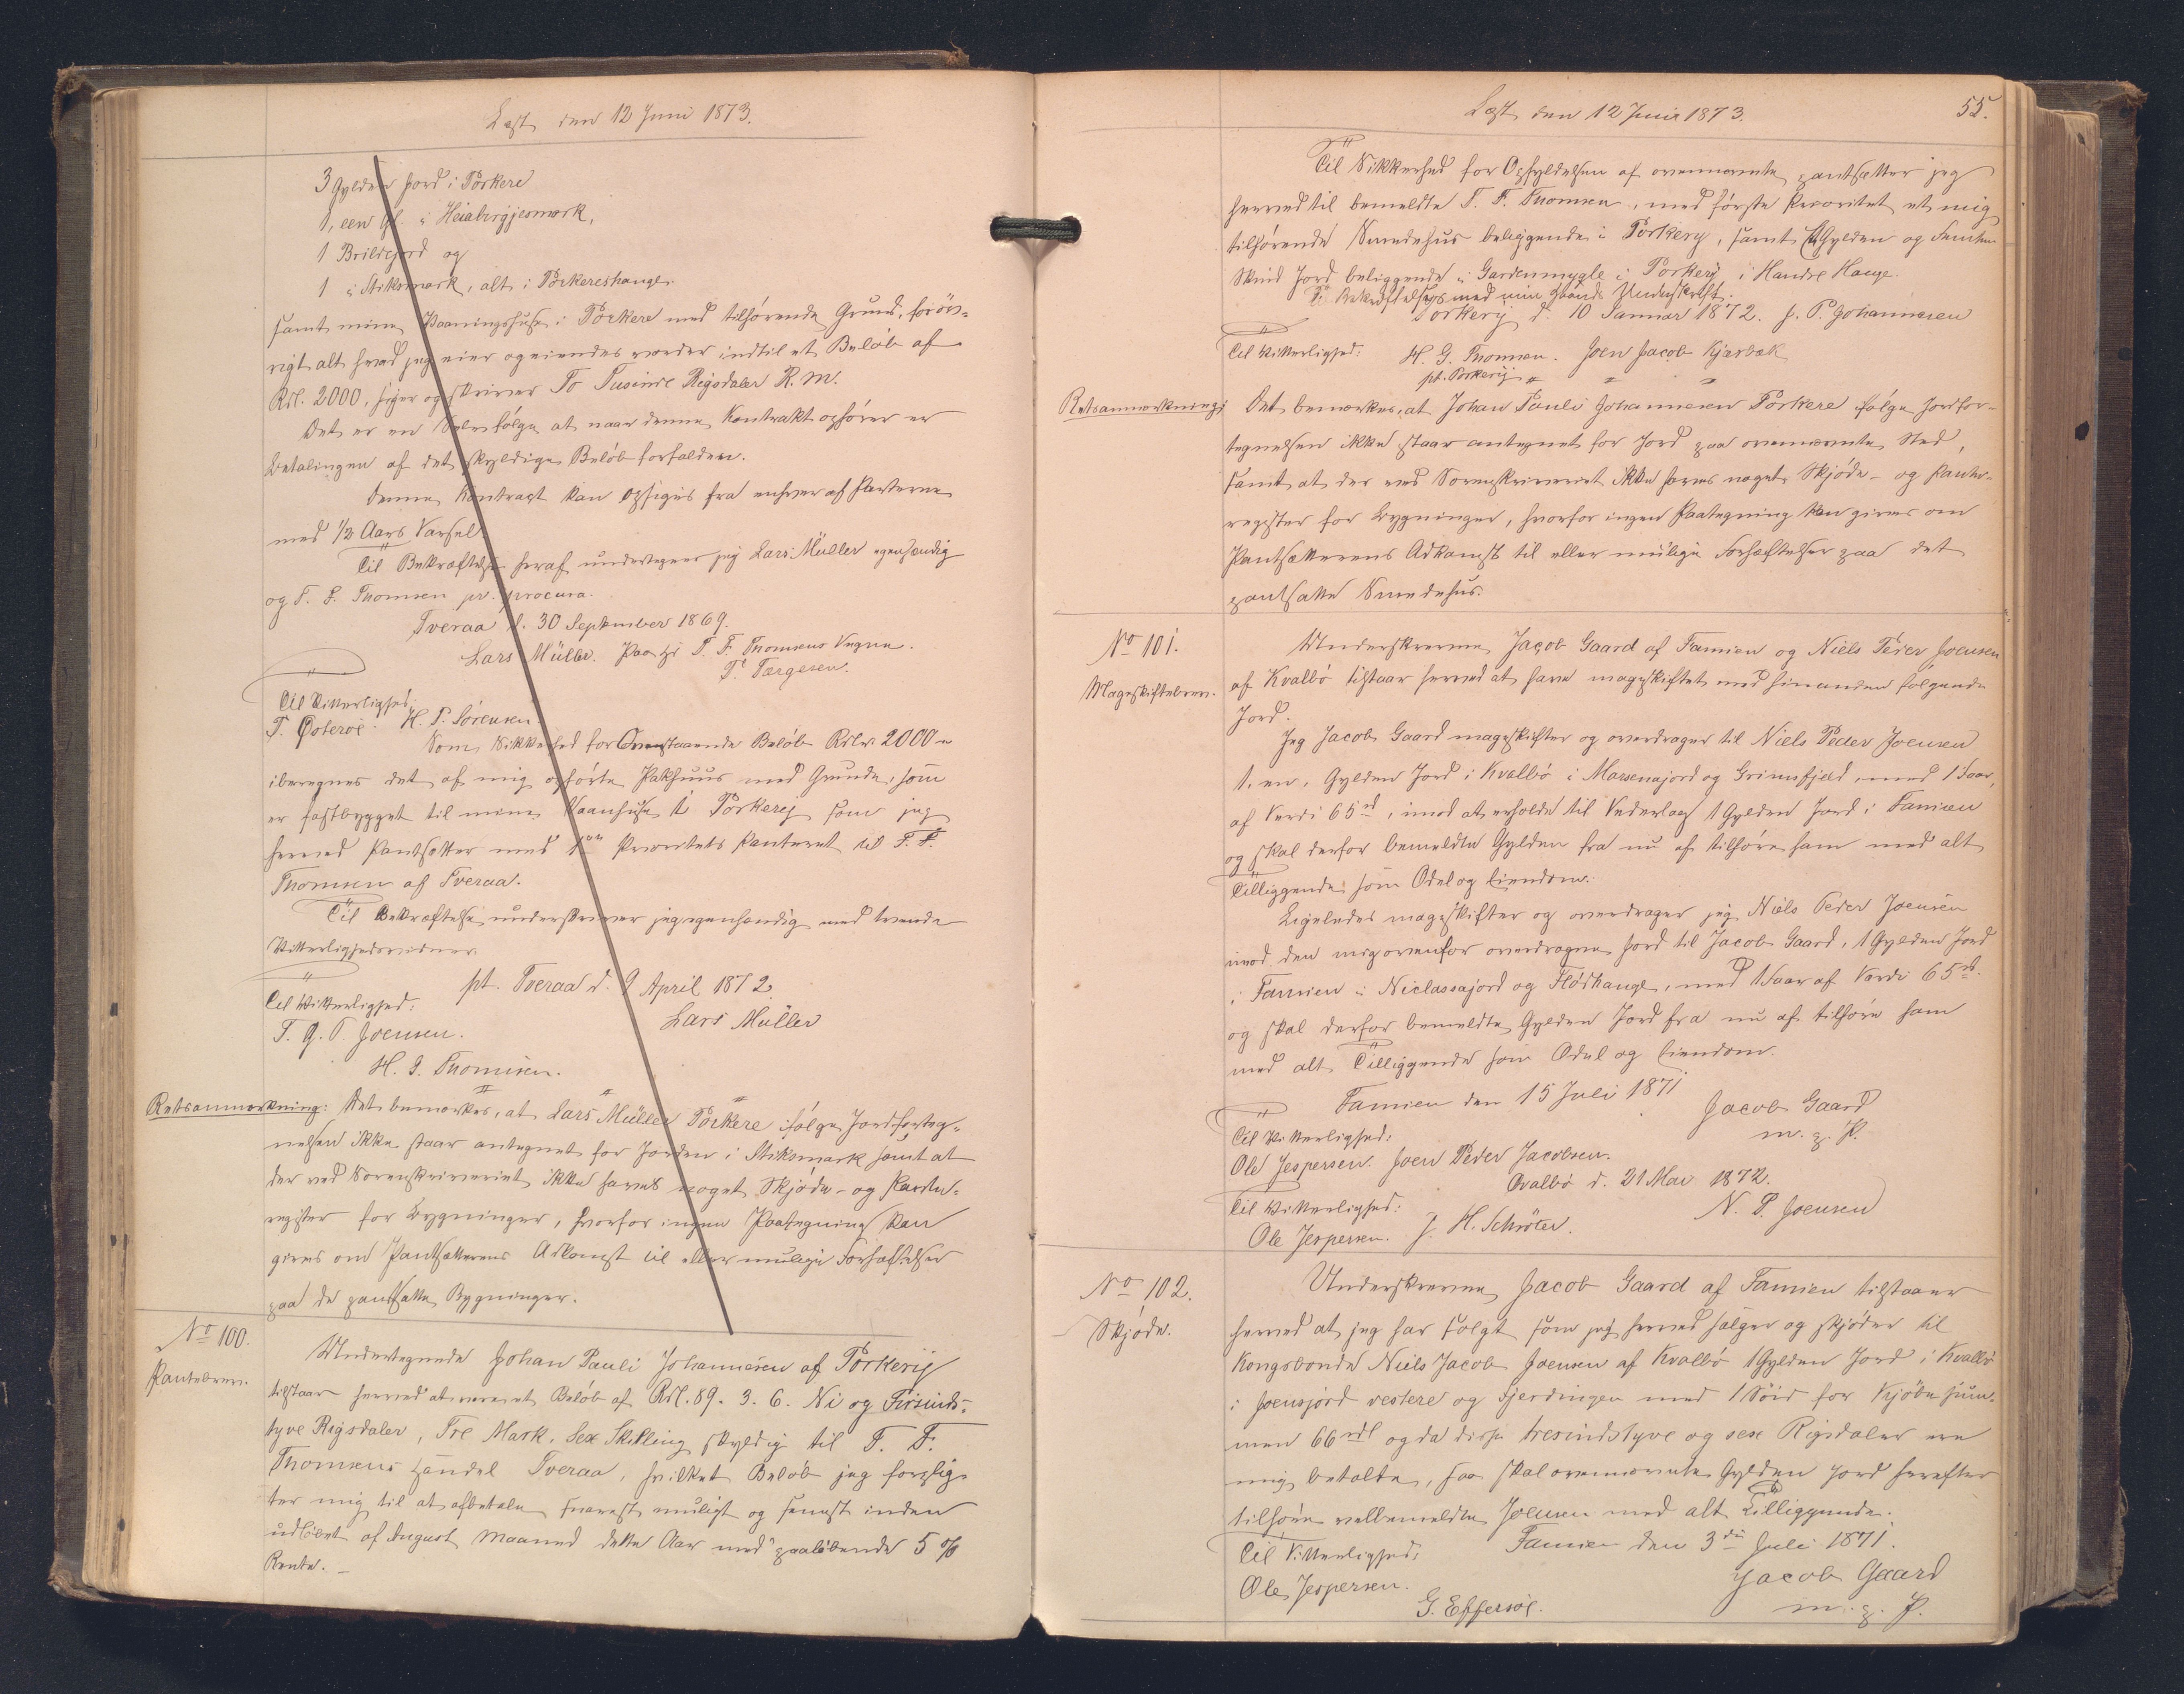 Læst den 12 Juni 1873.
3 Gylden Jord i Porkere
1, een Gl. i Heiabrygjesmork,
1 Brildejord og
1 i Stiksmork, alt i Porkereshauge.
samt mine Vaaningshuse i Porkere med tilhørende Grund, forøv-
rigt alt hvad jeg eier og eiendes vorder indtil et Beløb af
Rdl. 2000, siger og skriver To Tusinde Rigsdaler R. M.
Det er en Selvfølge at naar denne Kontrakt ophører er
Betalingen af det skyldige Beløb forfalden.
Denne Kontragt kan opsiges fra enhver af Parterne
med 1/2 Aars Varsel.
Til Bekræftelse heraf undertegner jeg Lars Müller egenhændig
og T. F. Thomsen pr. procura.
Tveraa d. 30 September 1869.
Lars Müller. Paa Hr T. F. Thomsens Vegne.
T. Tærgesen.
Til Vitterlighed:
T. Østerøe. H. P. Sørensen.
Som Sikkerhed for Ovenstaaende Beløb Rdlr. 2000 "
iberegnes det af mig opførte Pakhuus med Grunde, som
er fastbygget til mine Vaanhuse i Porkerij som jeg
herved Pantsætter med 1ste Prioritets Panteret til T. F.
Thomsen af Tveraa.
Til Bekræftelse underskriver jeg egenhændig med tvende
Vitterlighedsvidner.
pt. Tveraa d. 9 April 1872.
Til Vitterlighed:
Lars Müller
T. J. T. Joensen.
H. J. Thomsen.
Retsanmærkning: Det bemærkes, at Lars Müller Porkere ifølge Jordforteg-
nelsen ikke staar antegnet for Jorden i Stiksmark samt at
der ved Sorenskriveriet ikke haves noget Skjøde- og Pante-
register for Bygninger, hvorfor ingen Paategning kan
gives om Pantsætterens Adkomst til eller mulige Forhæftelser
paa de pantsatte Bygninger.
No 100.
Pantebrev.
Undertegnede Johan Pauli Johannesen af Porkerij
tilstaar herved at være et Beløb af Rdl. 89. 3. 6. Ni og Firsinds-
tyve Rigsdaler, Tre Mark, Sex Skilling skyldig til T. F.
Thomsens Handel Tveraa, hvilket Beløb jeg forplig-
ter mig til at afbetale snarest muligt og senest inden
udløbet af August Maaned dette Aar med paaløbende 5 %
Rente. -
Læst den 12 Juni 1873.
55.
Til Sikkerhed for Opfyldelsen af ovennævnte pantsætter jeg
herved til bemeldte T. F. Thomsen, med første Prioritet et mig
tilhørende Smedehus beliggende i Porkery, samt Gylden og
Skind Jord beliggende i Gardenmygle i Porkerij i Handre Hauge.
Til Bekræftelse med min Haands Underskrift.
Porkerij d. 10 Januar 1872. J. P. Johannesen
Til Vitterlighed: H. G. Thomsen. Joen Jacob Kjærbæk
pt. Porkerij
Retsanmærkning: Det bemærkes, at Johan Pauli Johannesen Porkere ifølge Jordfor-
tegnelsen ikke staar antegnet for Jord paa ovennævnte Sted,
samt at der ved Sorenskriveriet ikke haves noget Skjøde- og Pante-
register for Bygninger, hvorfor ingen Paategning kan gives om
Pantsætterens Adkomst til eller mulige Forhæftelser paa det
pantsatte Smedehus.
No 101.
Mageskiftebrev.
Underskrevne Jacob Gaard af Famien og Niels Peder Joensen
af Kvalbø tilstaar herved at have mageskiftet med hinanden følgende
Jord.
Jeg Jacob Gaard mageskifter og overdrager til Niels Peder Joensen
1, en, Gylden Jord i Kvalbø i Marsenajord og Grimsfjæld, med 1 Faar,
af Værdi 65 rd, imod at erholde til Vederlag 1 Gylden Jord i Famien
og skal derfor bemeldte Gylden fra nu af tilhøre ham med alt
Tilliggende som Odel og Eiendom.
Ligeledes mageskifter og overdrager jeg Niels Peder Joensen
imod den mig ovenfor overdragne Jord til Jacob Gaard, 1 Gylden Jord
i Famien i Niclassajord og Flødhauge, med 1 Faar af Værdi 65 rd.
og skal derfor bemeldte Gylden Jord fra nu af tilhøre ham
med alt Tilliggende som Odel og Eiendom.
Famien den 15 Juli 1871
Jacob Gaard
m. p. P.
Til Vitterlighed:
Ole Jespersen. Joen Peder Jacobsen.
Qvalbø d. 21 Mai 1872.
Til Vitterlighed:
N. P. Joensen
Ole Jespersen. J. H. Schröter.
No 102.
Skjøde.
Underskrevne Jacob Gaard af Famien tilstaaer
herved at jeg har solgt som jeg herved sælger og skjøder til
Kongsbonde Niels Jacob Joensen af Kvalbø 1 Gylden Jord i Kvalbø
i Joensjord vestere og Fjerdingen med 1 Söid for Kjøbesum-
men 66 rdl og da disse tresindstyve og sex Rigsdaler ere
mig betalte, saa skal ovennævnte Gylden Jord herefter
tilhøre velbemeldte Joensen med alt Tilliggende.
Famien den 3die Juli 1871.
Til Vitterlighed:
Jacob Gaard
Ole Jespersen.
m. p. P.
G. Effersøe.